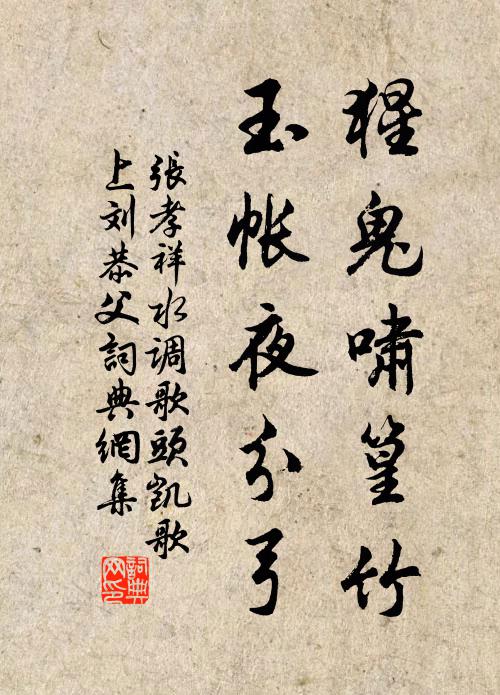 猩鬼啸篁竹
玉帐夜分弓
張孝祥水调歌頭凯歌
上刘恭父詞典網集
詞典
网印